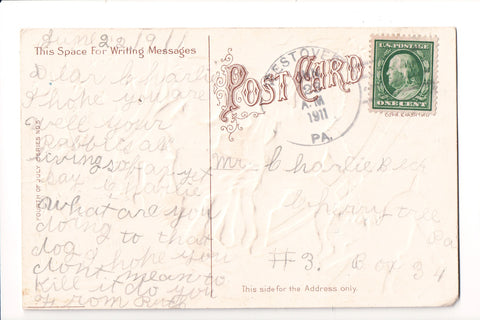 June 22 1911
This Space For Writing Messages
Dear Charlie
I hope you are
well your
Rabbits are
living so far yet
say Charlie
what are you
doing to that
dog I hope you
dont mean to
kill it do you
From Ruth
FOURTH OF JULY SERIES NO.
POST CARD
WESTOVER
JUN
A.M
1911
PA.
U.S. POSTAGE
ONE CENT
Mr. Charlie Beck
Cherrytree
Pa
#3. Box 34
This side for the Address only.